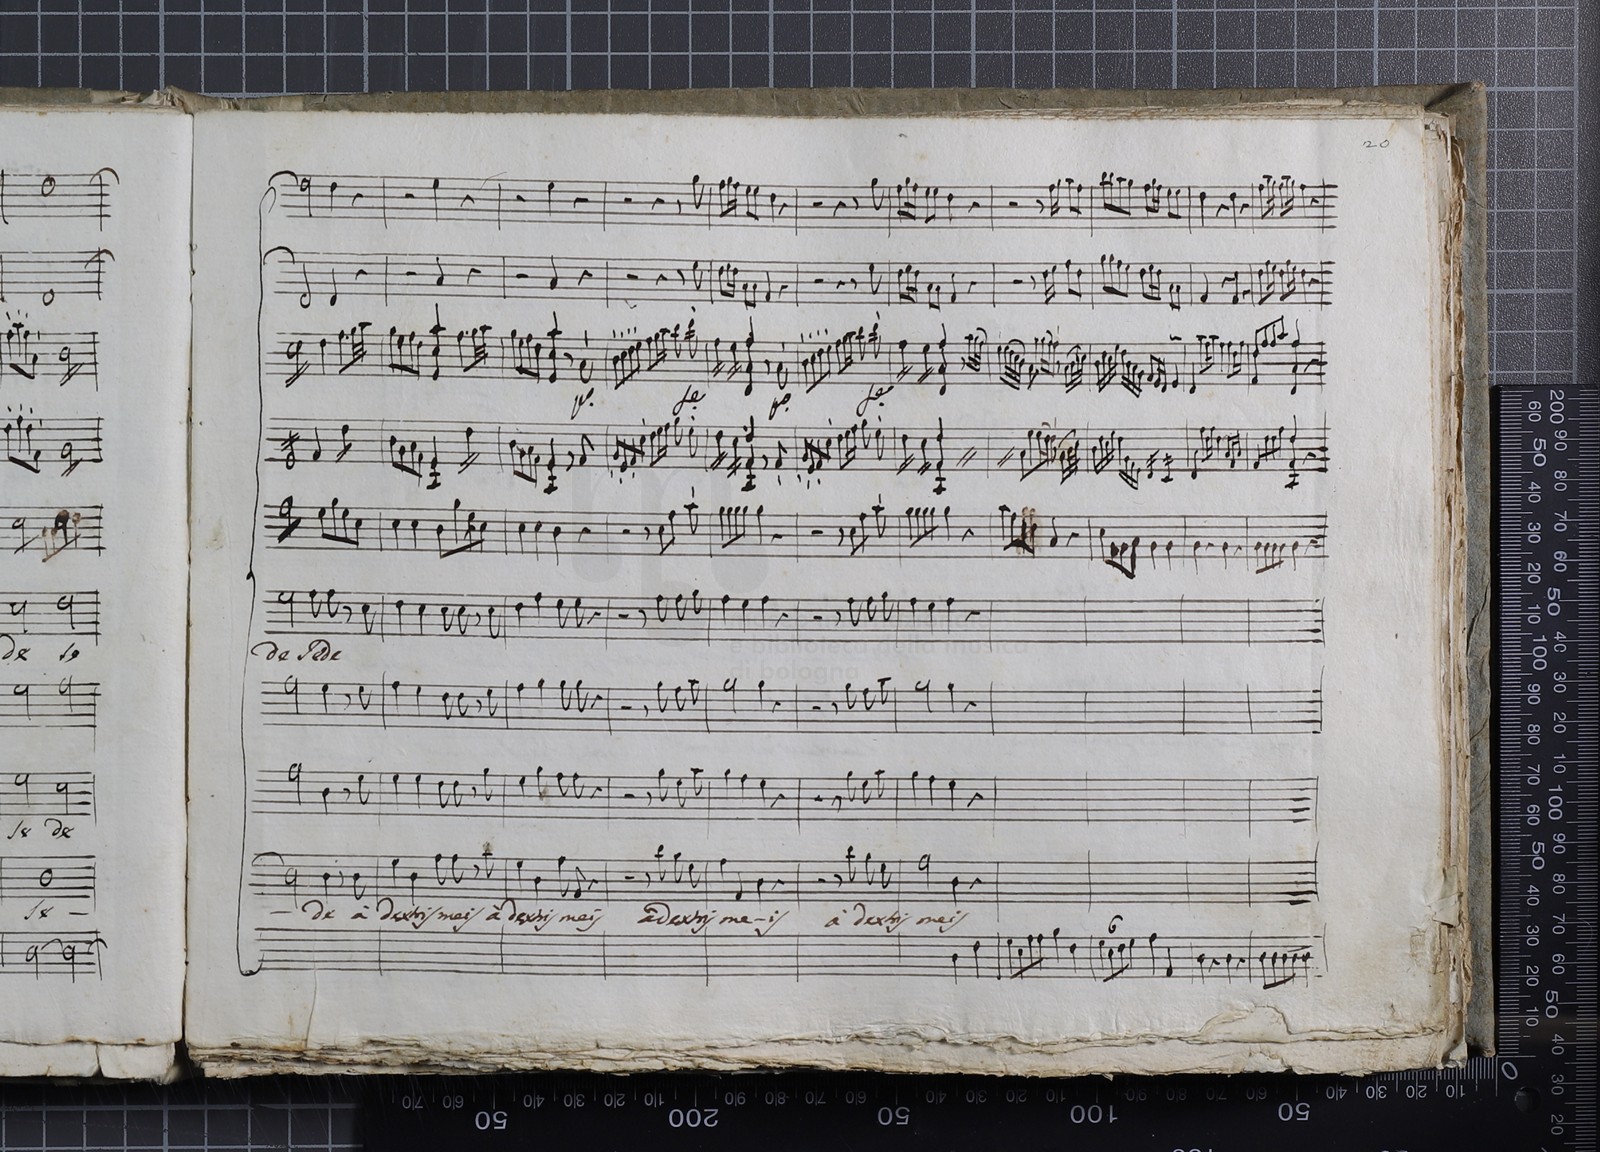 20
p.
fe
p.
fe
de Sede
de se
se de
se -
- de à dextris meis à dextris meis à dextris me-is à dextris meis
6
e biblioteca della musica
di bologna